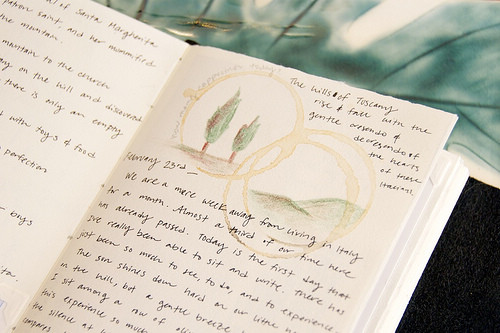 of Santa Margherita
patron saint and her mummified
the mountain.
mountain to the church
on the hill and discovered
there is only an empty
with toys & food
perfection
boys
The hills of Tuscany
rise & fall with the
gentle crescendo &
decrescendo of
the hearts
of these
Italians.
February 23rd —
We are a mere week away from living in Italy
for a month. Almost a third of our time here
has already passed. Today is the first day that
I've really been able to sit and write. There has
just been so much to see, to do, and to experience.
The sun shines down hard on our little
on the hill, but a gentle breeze
I sit among a row of
this experience so much
the silence at
compares